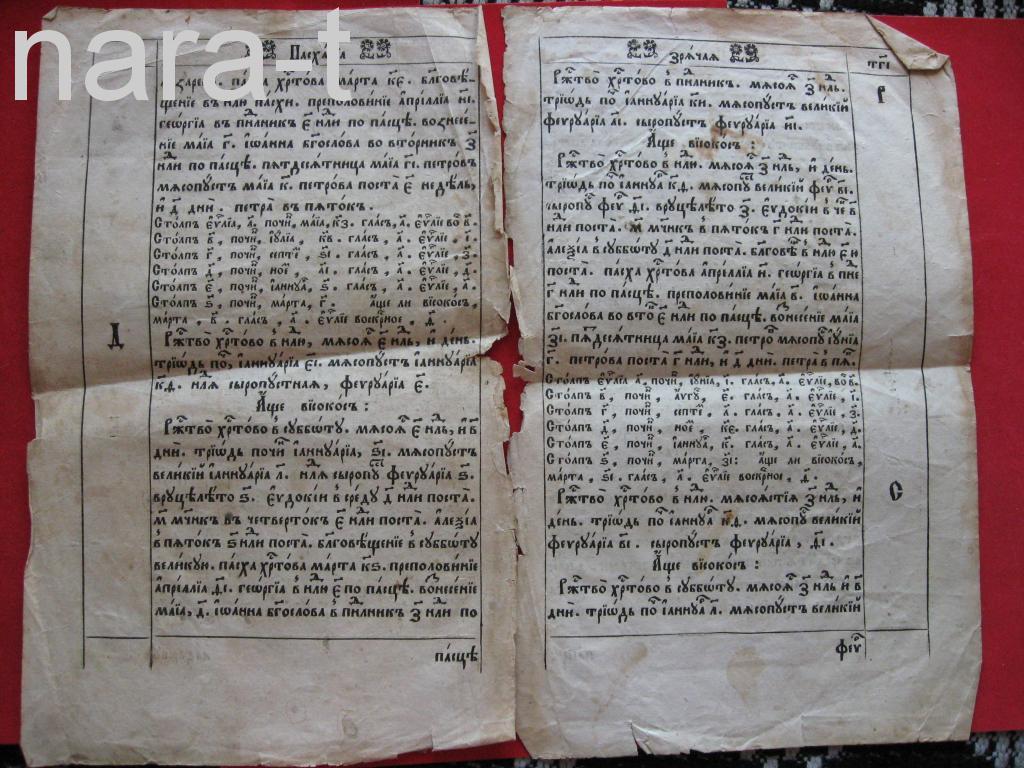 nara-t
Пасха́лїа
ла́заревъ. па́сха хрⷭ҇то́ва ма́рта к҃е. бл҃говѣ́-
щенїе въ нⷣлю па́схи. преполове́нїе а҆прі́ллїа и҃і.
гео́ргїа въ пнⷣлникъ є҃ нⷣли по па́сцѣ. вознесе́-
нїе ма́їа г҃. і҆ѡа́нна бг҃осло́ва во вто́рникъ з҃
нⷣли по па́сцѣ. пѧтдесѧ́тница ма́їа г҃і. петро́въ
мѧсопу́стъ ма́їа к҃. петро́ва поста̀ є҃ недѣ́ль,
и҆ д҃ дни̑. петра̀ въ пѧто́къ.
Сто́лпъ є҆ѵⷢ҇лїа, а҃. почи́н, ма́їа, к҃з. гла́съ, а҃. є҆ѵⷢ҇лїе во в҃.
Сто́лпъ в҃, почи́н, і҆у́лїа, к҃в. гла́съ, а҃. є҆ѵⷢ҇лїе, і҃.
Сто́лпъ г҃, почи́н, септе́, ѕ҃і. гла́съ, а҃. є҆ѵⷢ҇лїе, з҃.
Сто́лпъ д҃, почи́н, ное́, а҃і. гла́съ, а҃. є҆ѵⷢ҇лїе, д҃.
Сто́лпъ є҃, почи́н, і҆аннуа́, ѕ҃. гла́съ, а҃. є҆ѵⷢ҇лїе, а҃.
Сто́лпъ ѕ҃, почи́н, ма́рта, г҃. а҆́ще ли високо́съ,
ма́рта, в҃. гла́съ, а҃. є҆ѵⷢ҇лїе воскр҃ное, д҃.
Д
Рⷤтво̀ хрⷭ҇то́во в нⷣлю, мѧсоѧⷭ є҃ нⷣль, и҆ де́нь.
трїѡ́дь поⷱ, і҆аннуа́рїа є҃і. мѧсопу́стъ і҆аннуа́рїа
к҃д. нⷣлѧ сыропу́стнаѧ, феѵруа́рїа є҃.
А҆́ще високо́съ :
Рⷤтво̀ хрⷭ҇то́во в суббѡ́ту. мѧсоѧⷭ є҃ нⷣль, и҆ в҃
дни̑. трїѡ́дь почи́н і҆аннуа́рїа, ѕ҃і. мѧсопу́стъ
вели́кїй і҆аннуа́рїа л҃. нⷣлѧ сыропуⷭ феѵруа́рїа ѕ҃.
врꙋцелѣ́то ѕ҃. є҆ѵдокі́и в сре́ду д҃ нⷣли поста̀.
м҃ мч҃никъ въ четверто́къ є҃ нⷣли поста̀. а҆леѯі́а
в пѧто́къ ѕ҃ нⷣли поста̀. бл҃гове́щенїе в суббѡ́ту
вели́кую. па́сха хрⷭ҇то́ва ма́рта к҃ѕ. преполове́нїе
а҆прі́ллїа д҃і. гео́ргїа в нⷣлю є҃ по па́сцѣ. вознесе́нїе
ма́їа, д҃. і҆ѡа́нна бг҃осло́ва в пнⷣлникъ з҃ нⷣли по
па́сцѣ
Зрѧ́чаѧ
т҃гі
Р
Рⷤтво̀ хрⷭ҇то́во в пнⷣлникъ. мѧсоѧⷭ з҃ нⷣль.
трїѡ́дь по і҆аннуа́рїа к҃и. мѧсопу́стъ вели́кїй
феѵруа́рїа а҃і. сыропу́стъ феѵруа́рїа и҃і.
А҆́ще високо́съ :
Рⷤтво̀ хрⷭ҇то́во в нⷣлю. мѧсоѧⷭ з҃ нⷣль, и҆ де́нь.
трїѡ́дь поⷱ і҆аннуаⷬ к҃д. мѧсопуⷭ вели́кїй феѵⷬ в҃і.
сыропуⷭ феѵⷬ д҃і. врꙋцелѣ́то з҃. є҆ѵдокі́и в чеⷡ҇ в҃
нⷣли поста̀. м҃ мч҃никъ в пѧто́къ г҃ нⷣли поста̀.
А҆леѯі́а в суббѡ́ту д҃ нⷣли поста̀. бл҃говѣⷳ в нⷣлю є҃ и҆
поста̀. па́сха хрⷭ҇то́ва а҆прі́ллїа и҃. гео́ргїа в пнⷣе
г҃ нⷣли по па́сцѣ. преполове́нїе ма́їа в҃. і҆ѡа́нна
бг҃осло́ва во втоⷬ є҃ нⷣли по па́сцѣ. вознесе́нїе ма́їа
з҃і. пѧдесѧ́тница ма́їа к҃з. петроⷡ мѧсопуⷭ і҆у́нїа
г҃. петро́ва поста̀ г҃ нⷣли, и҆ д҃ дни̑. петра̀ в пѧⷮ.
Сто́лпъ є҆ѵⷢ҇лїе а҃, почи́н, і҆у́нїа, і҃. гла́съ, а҃. є҆ѵⷢ҇лїе, во в҃.
Сто́лпъ в҃, почи́н, а҆́ѵгу, є҃. гла́съ, а҃. є҆ѵⷢ҇лїе, і҃.
Сто́лпъ г҃, почи́н, септе́, л҃. гла́съ, а҃. є҆ѵⷢ҇лїе, з҃.
Сто́лпъ д҃, почи́н, ное́, к҃е. гла́съ, а҃. є҆ѵⷢ҇лїе, д҃.
Сто́лпъ є҃, почи́н, і҆аннуа́, к҃. гла́съ, а҃. є҆ѵⷢ҇лїе, а҃.
Сто́лпъ ѕ҃, почи́н, ма́рта, з҃і: а҆́ще ли високо́съ,
ма́рта, ѕ҃і. гла́съ, а҃. є҆ѵⷢ҇лїе воскр҃ное, д҃.
С
Рⷤтво̀ хрⷭ҇то́во в нⷣлю. мѧсоѧ́стїѧ з҃ нⷣль, и҆
де́нь. трїѡ́дь поⷱ і҆аннуаⷬ к҃д. мѧсопуⷭ вели́кїй
феѵруа́рїа в҃і. сыропу́стъ феѵруа́рїа, д҃і.
А҆́ще високо́съ :
Рⷤтво̀ хрⷭ҇то́во в суббѡ́ту. мѧсоѧⷭ з҃ нⷣль и҆ в҃
дни̑. трїѡ́дь поⷱ і҆аннуаⷬ л҃. мѧсопу́стъ вели́кїй
феѵⷬ